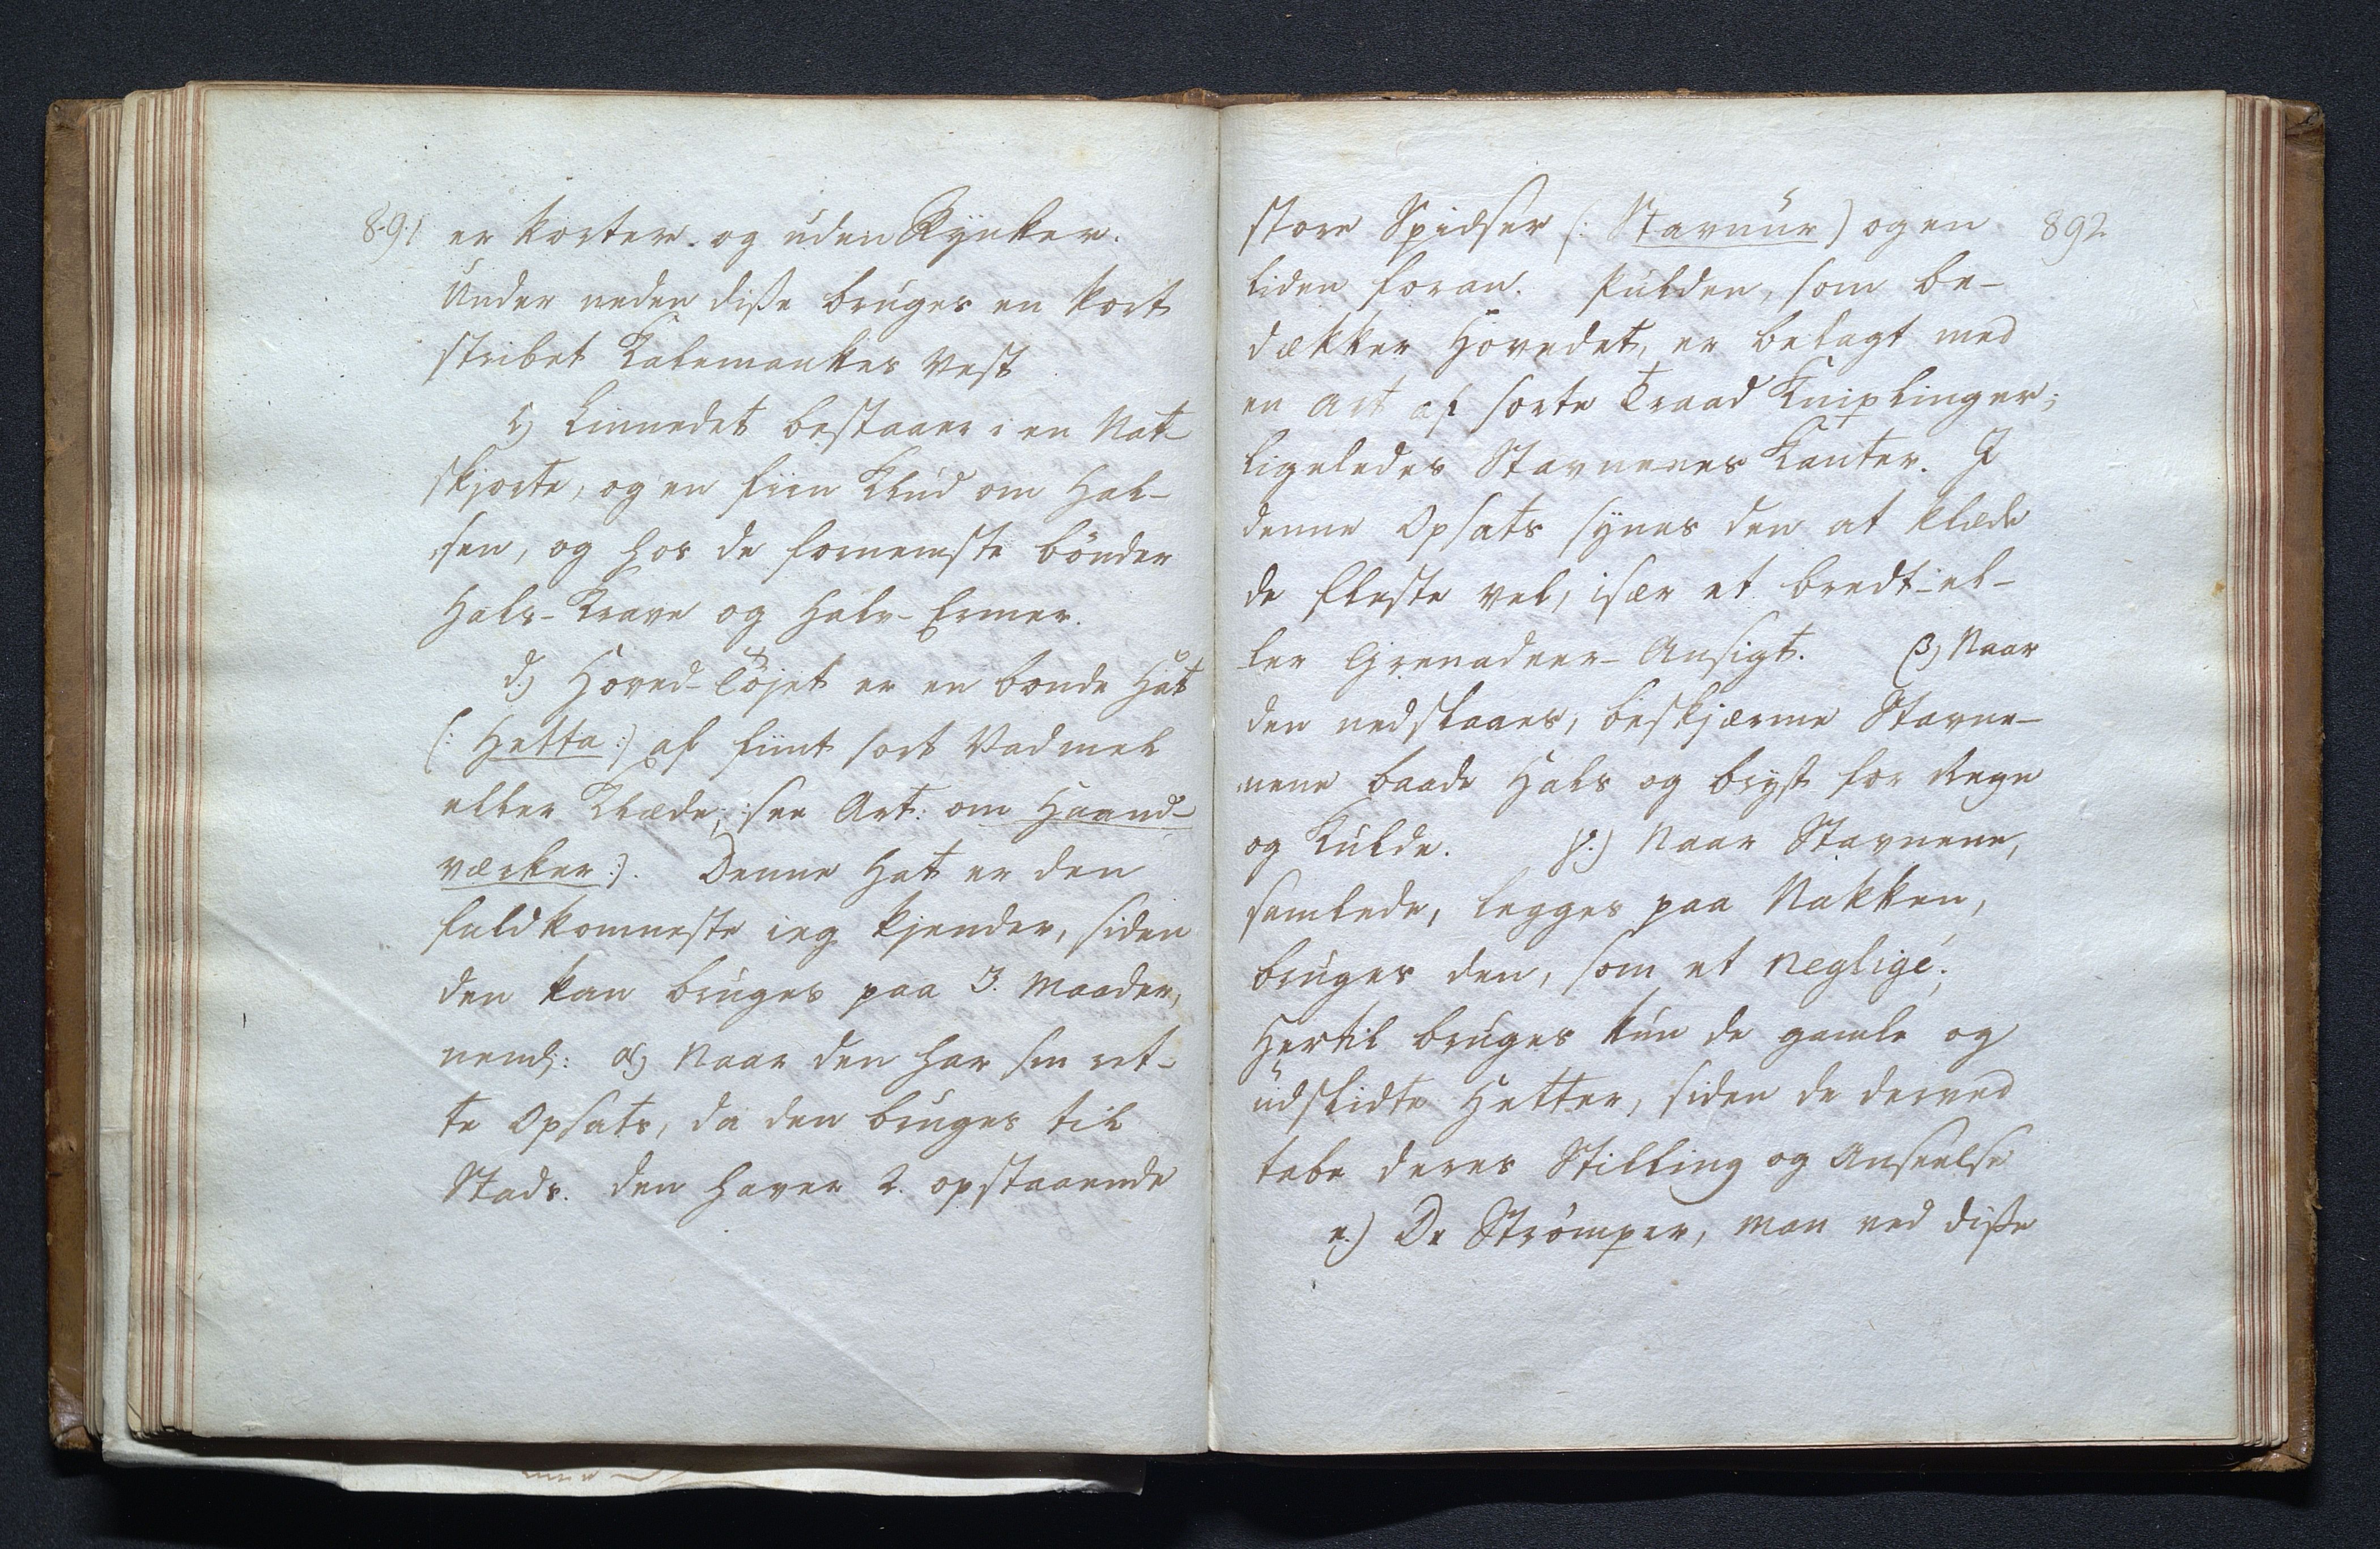 891
er korter. og uden Rynker.
Under neden disse bruges en kort
stribet Kalemankes Vest
c) Linnedet bestaaer i en Nat-
skjorte, og en fiin Klud om Hal-
sen, og hos de fornemste bønder
Hals-Krave og Halv-Ermer.
d.) Hoved-Tøjet er en bonde Hat
(: Hetta :) af fiint sort Vadmel
eller Klæde; see Art: om Haand-
værker:). Denne Hat er den
fuldkomneste ieg kjender, siden
den kan bruges paa 3. Maader,
neml: α) Naar den har sin ret-
te Opsats, da den bruges til
Stads. den haver 2. opstaaende
892
store Spidser (: Stavnur) og en
liden foran. Pulden, som be-
dækker Hovedet, er belagt med
en Art af sorte Traad Kniplinger;
ligeledes Stavnenes Kanter. I
denne Opsats synes den at klæde
de fleste vel, især et bredt-el-
ler Grenadeer-Ansigt. β) Naar
den nedslaaes, beskjærme Stavne-
nene baade Hals og bryst for Regn
og Kulde. γ.) Naar Stavnene,
samlede, legges paa Nakken,
bruges den, som et negligé;
Hertil bruges kun de gamle og
udslidte Hetter, siden de derved
tabe deres Stilling og Anseelse
e.) De Strömper, man ved disse